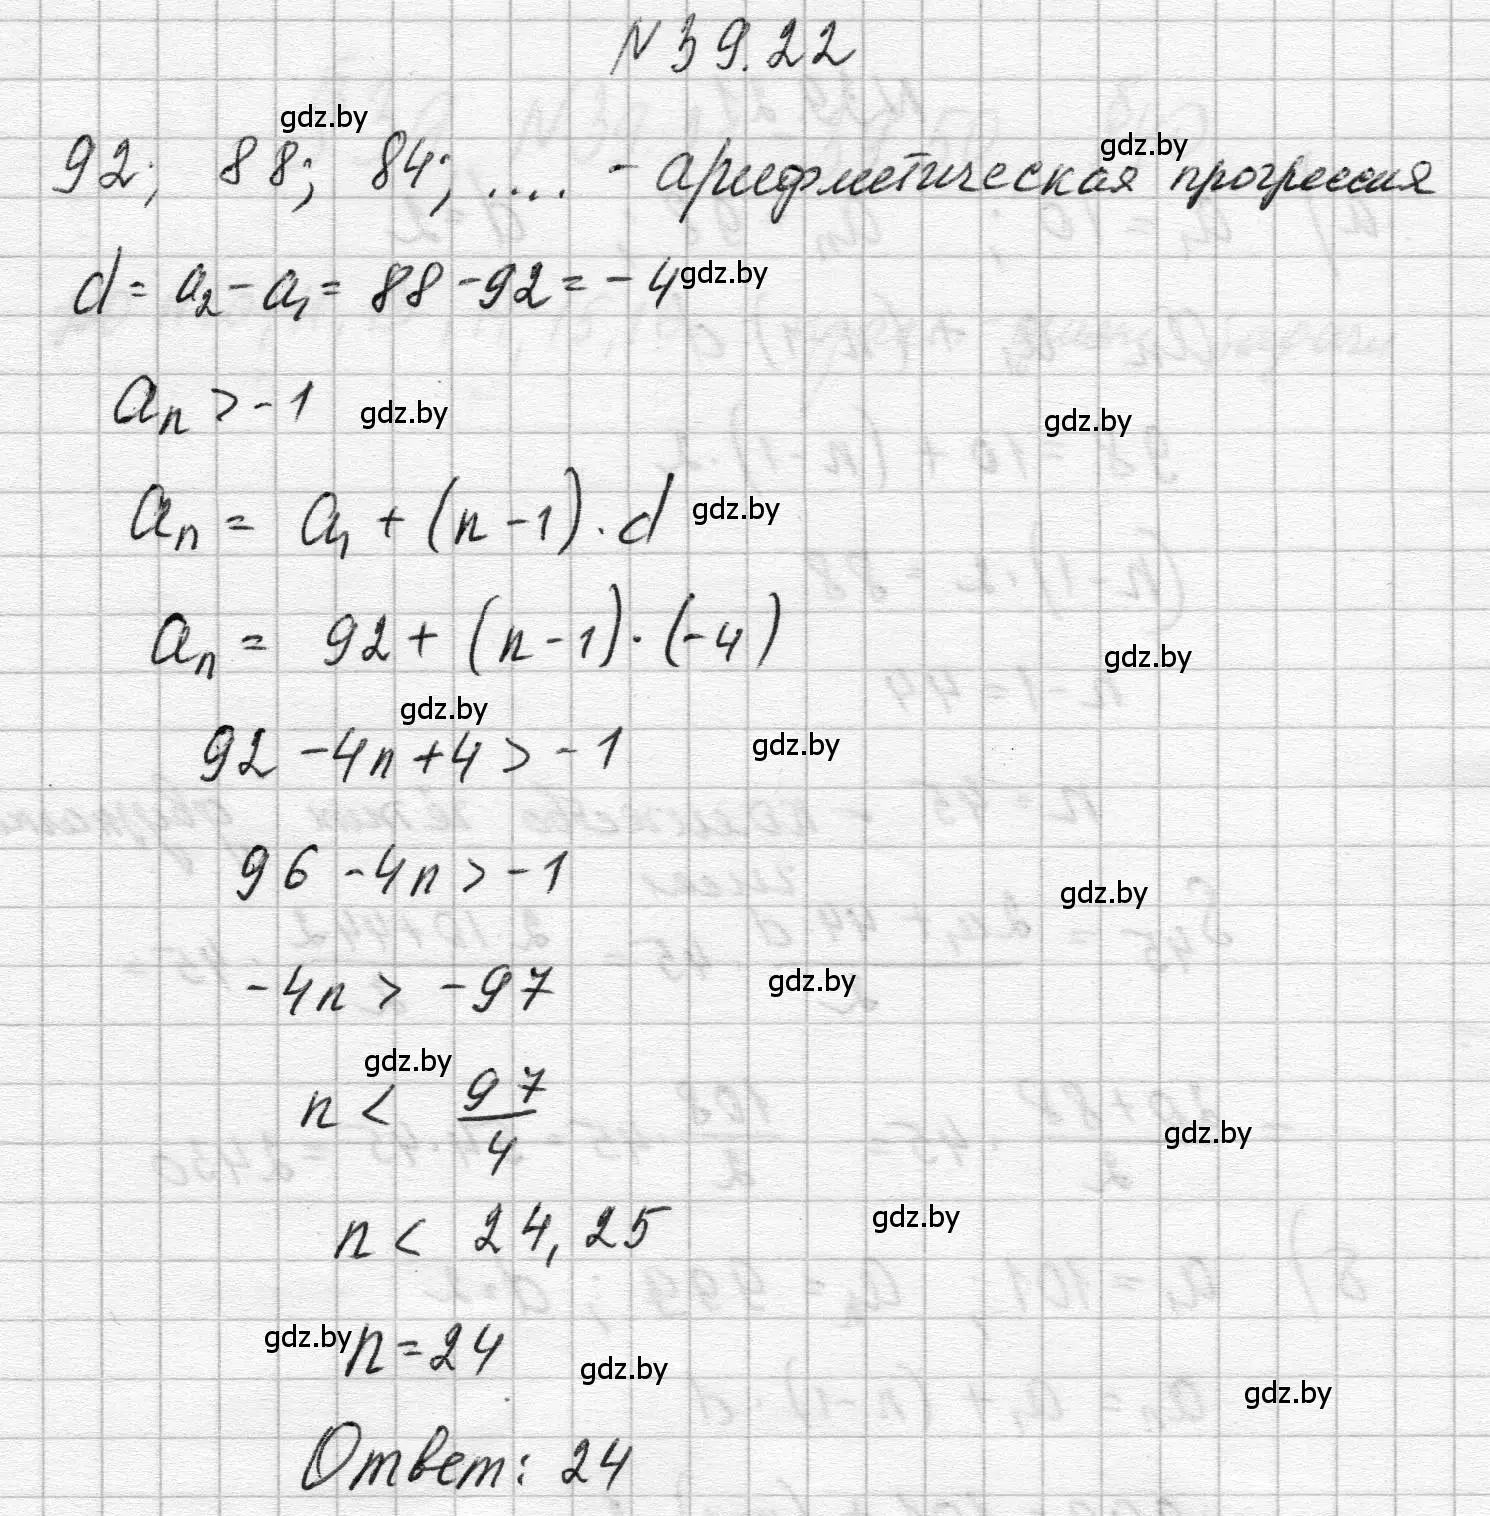 N 39.22
gdz.by
92; 88; 84; .... - арифметическая прогрессия
gdz.by
d = a₂ - a₁ = 88 - 92 = - 4
gdz.by
aₙ > - 1
gdz.by
gdz.by
aₙ = a₁ + (n - 1) · d
gdz.by
aₙ = 92 + (n - 1) · (- 4)
gdz.by
gdz.by
92 - 4n + 4 > - 1
gdz.by
96 - 4n > - 1
gdz.by
- 4n > - 97
gdz.by
gdz.by
n < 97/4
gdz.by
n < 24,25
gdz.by
gdz.by
n = 24
gdz.by
gdz.by
Ответ: 24